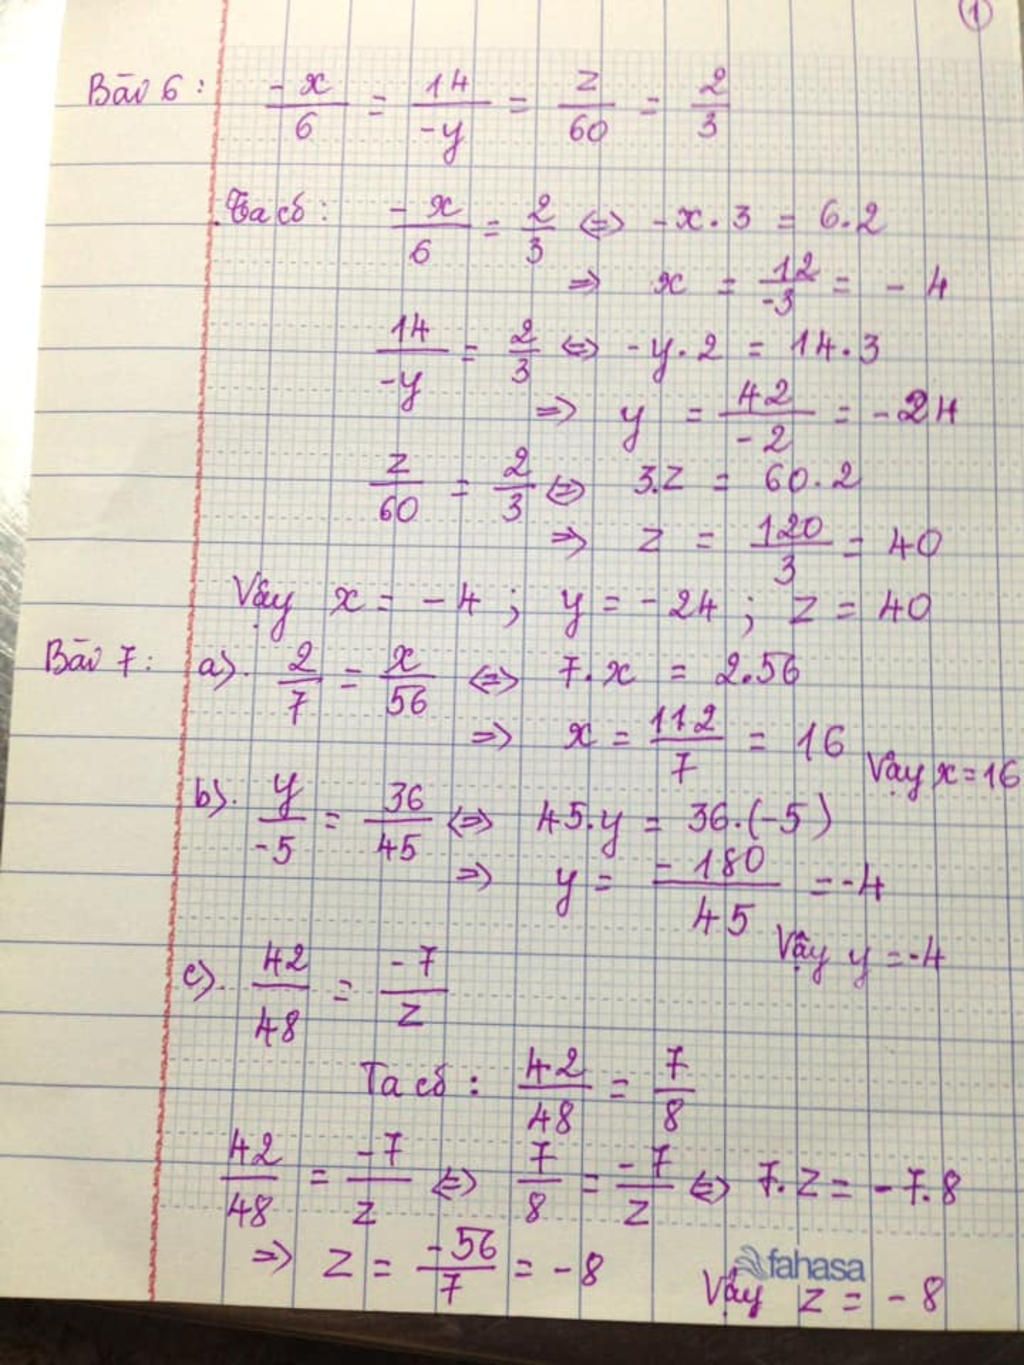 ①
Bài 6 : -x/6 = 14/-y = z/60 = 2/3
Ta có : -x/6 = 2/3 ⇔ -x.3 = 6.2
⇒ x = 12/-3 = -4
14/-y = 2/3 ⇔ -y.2 = 14.3
⇒ y = 42/-2 = -24
z/60 = 2/3 ⇔ 3.z = 60.2
⇒ z = 120/3 = 40
Vậy x = -4 ; y = -24 ; z = 40
Bài 7 : a). 2/7 = x/56 ⇔ 7.x = 2.56
⇒ x = 112/7 = 16 Vậy x = 16
b). y/-5 = 36/45 ⇔ 45.y = 36.(-5)
⇒ y = -180/45 = -4
Vậy y = -4
c). 42/48 = -7/z
Ta có : 42/48 = 7/8
42/48 = -7/z ⇔ 7/8 = -7/z ⇔ 7.z = -7.8
⇒ z = -56/7 = -8
fahasa
Vậy z = -8